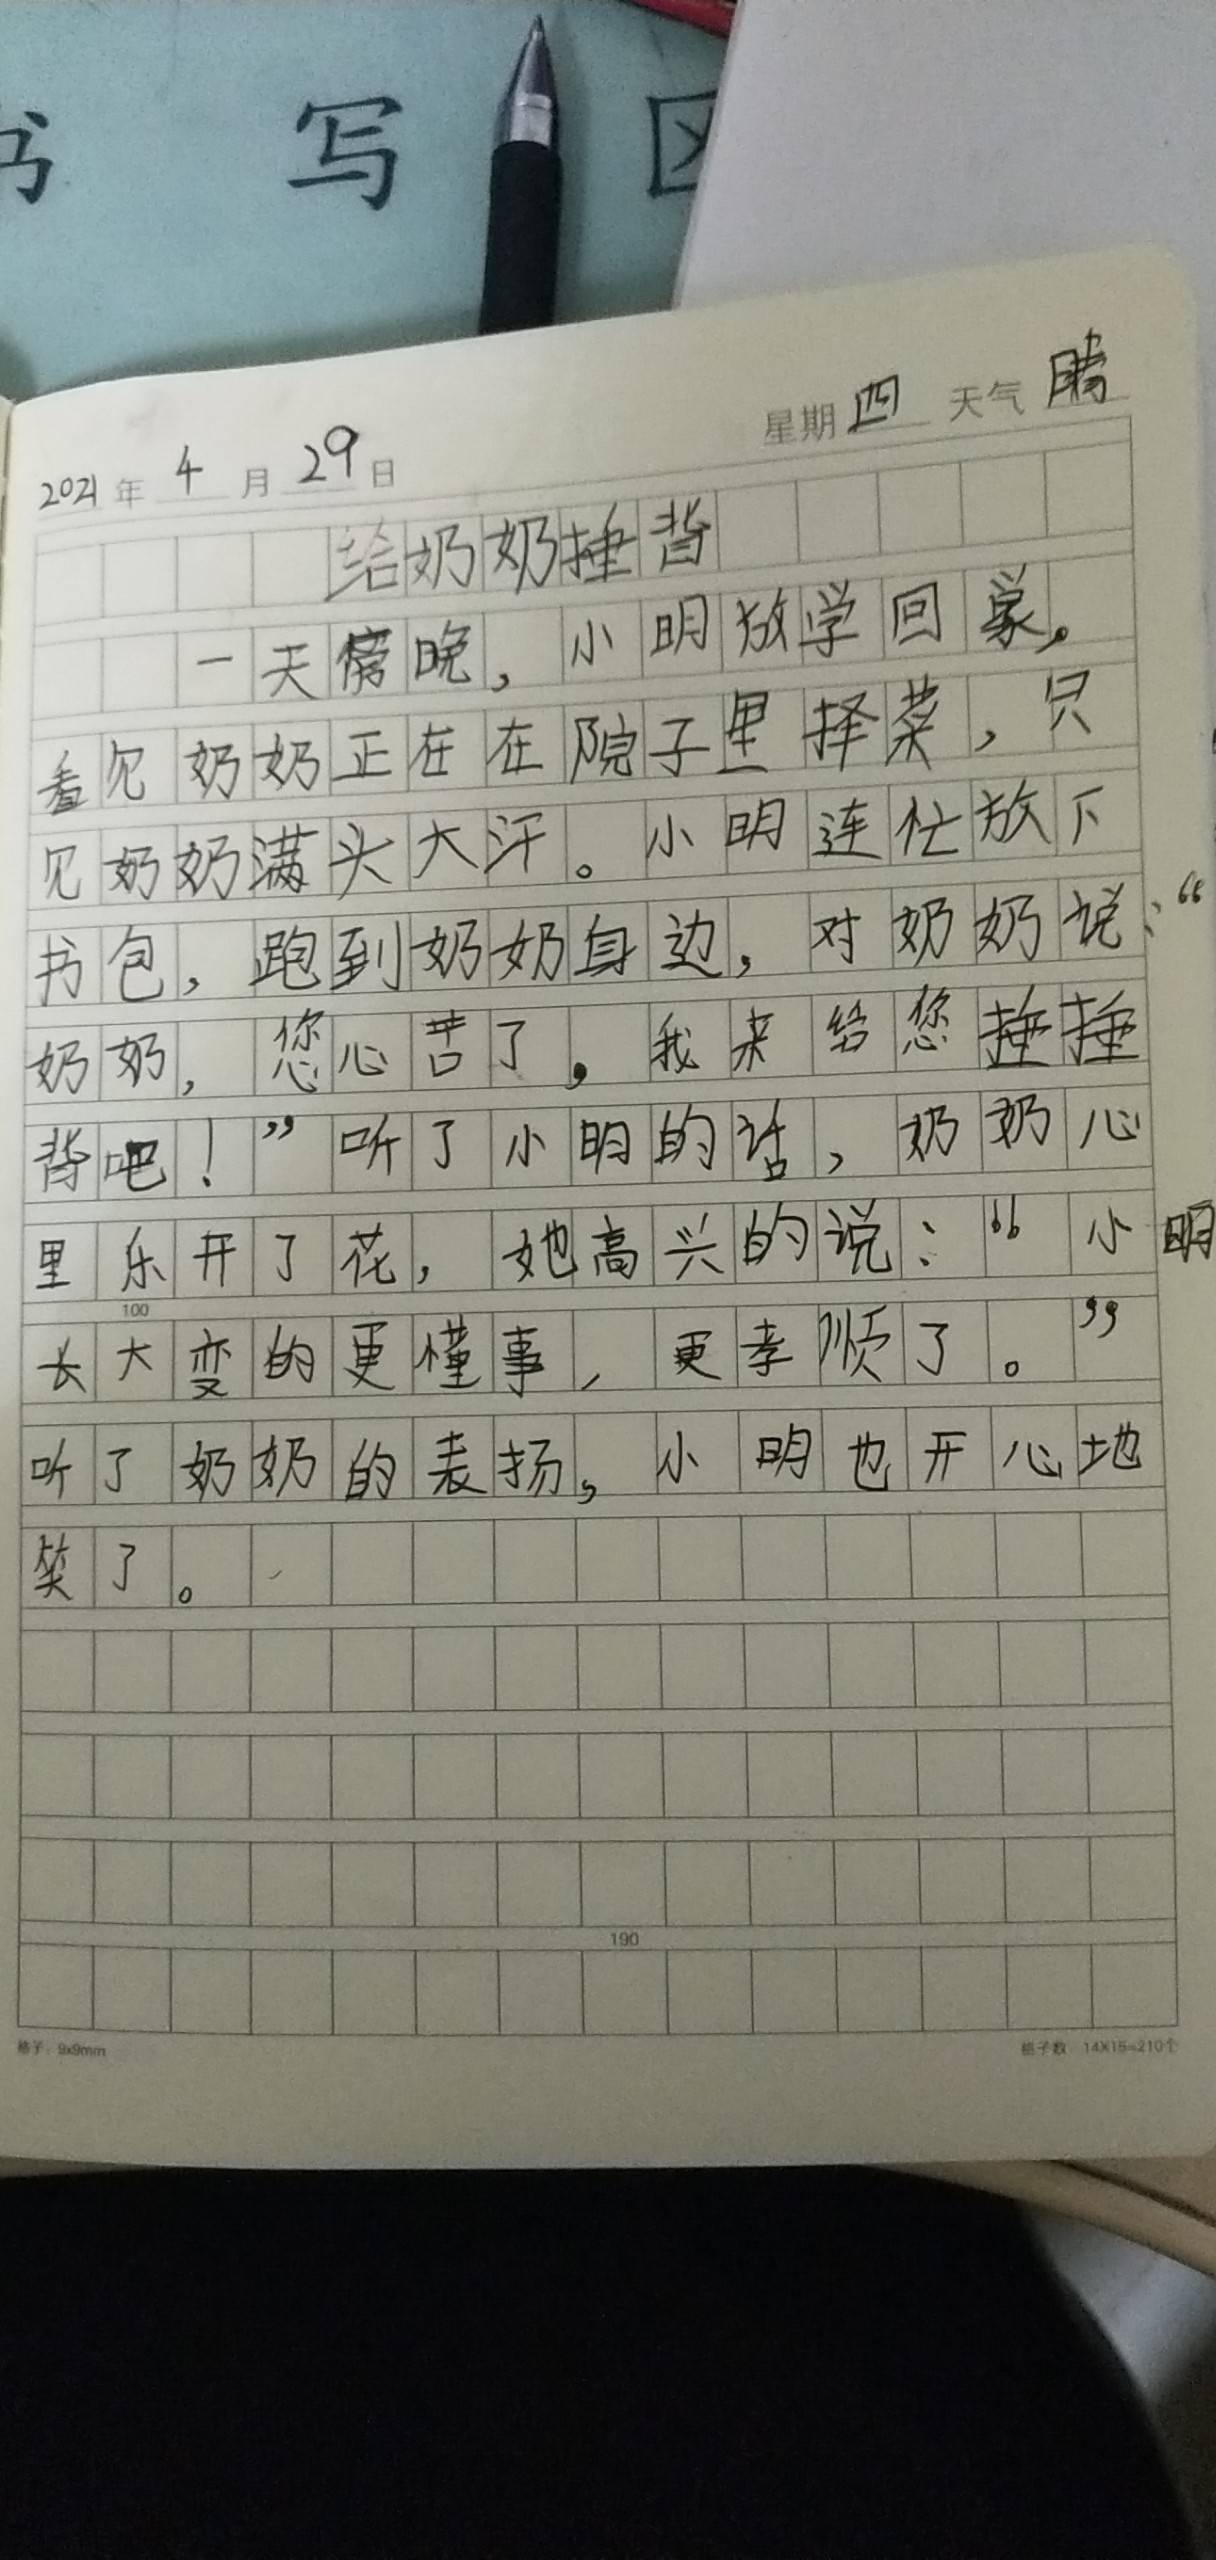 书 写 区
2021 年 4 月 29 日 星期 四 天气 晴
给奶奶捶背
一天傍晚，小明放学回家，
看见奶奶正在在院子里择菜，只
见奶奶满头大汗。小明连忙放下
书包，跑到奶奶身边，对奶奶说：“
奶奶，您心苦了，我来给您捶捶
背吧！”听了小明的话，奶奶心
里乐开了花，她高兴的说：“小明
100
长大变的更懂事，更孝顺了。”
听了奶奶的表扬，小明也开心地
笑了。
190
格子：9x9mm 格子数：14X15=210个